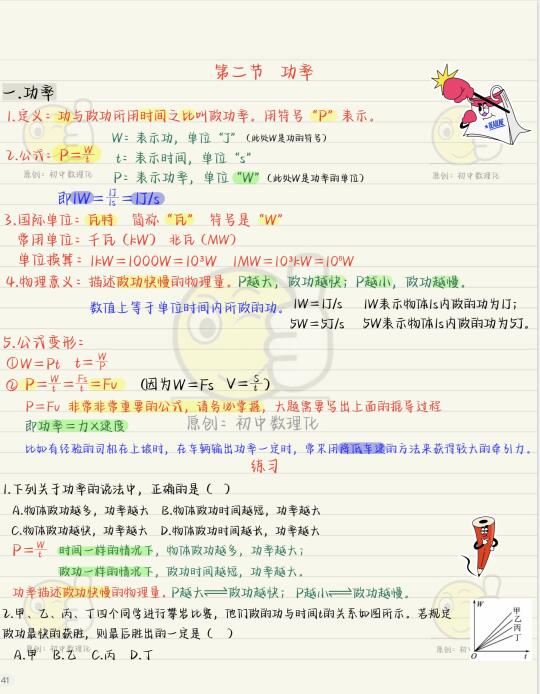 第二节 功率
一.功率
1.定义：功与做功所用时间之比叫做功率。用符号“P”表示。
W：表示功，单位“J”（此处W是功的符号）
2.公式：P=W/t t：表示时间，单位“s”
P：表示功率，单位“W”（此处W是功率的单位）
原创：初中数理化 原创：初中数理化
即1W=1J/1s=1J/s
3.国际单位：瓦特 简称“瓦” 符号是“W”
常用单位：千瓦（kW） 兆瓦（MW）
单位换算：1kW=1000W=10³W 1MW=10³kW=10⁶W
4.物理意义：描述做功快慢的物理量。P越大，做功越快；P越小，做功越慢。
数值上等于单位时间内所做的功。 1W=1J/s 1W表示物体1s内做的功为1J；
5W=5J/s 5W表示物体1s内做的功为5J。
5.公式变形：
①W=Pt t=W/P
②P=W/t=Fs/t=Fv （因为W=Fs V=s/t）
P=Fv 非常非常重要的公式，请务必掌握，大题需要写出上面的推导过程
即功率=力×速度
原创：初中数理化
比如有经验的司机在上坡时，在车辆输出功率一定时，常采用降低车速的方法来获得较大的牵引力。
练习
1.下列关于功率的说法中，正确的是（ ）
A.物体做功越多，功率越大 B.物体做功时间越短，功率越大
C.物体做功越快，功率越大 D.物体做功时间越长，功率越大
P=W/t 时间一样的情况下，物体做功越多，功率越大；
做功一样的情况下，做功时间越短，功率越大。
功率描述做功快慢的物理量。P越大⇌做功越快； P越小⇌做功越慢。
2.甲、乙、丙、丁四个同学进行攀岩比赛，他们做的功与时间t的关系如图所示。若规定
做功最快的获胜，则最后胜出的一定是（ ）
原创：初中数理化
A.甲 B.乙 C.丙 D.丁
W
甲
乙
丙
丁
O t
41